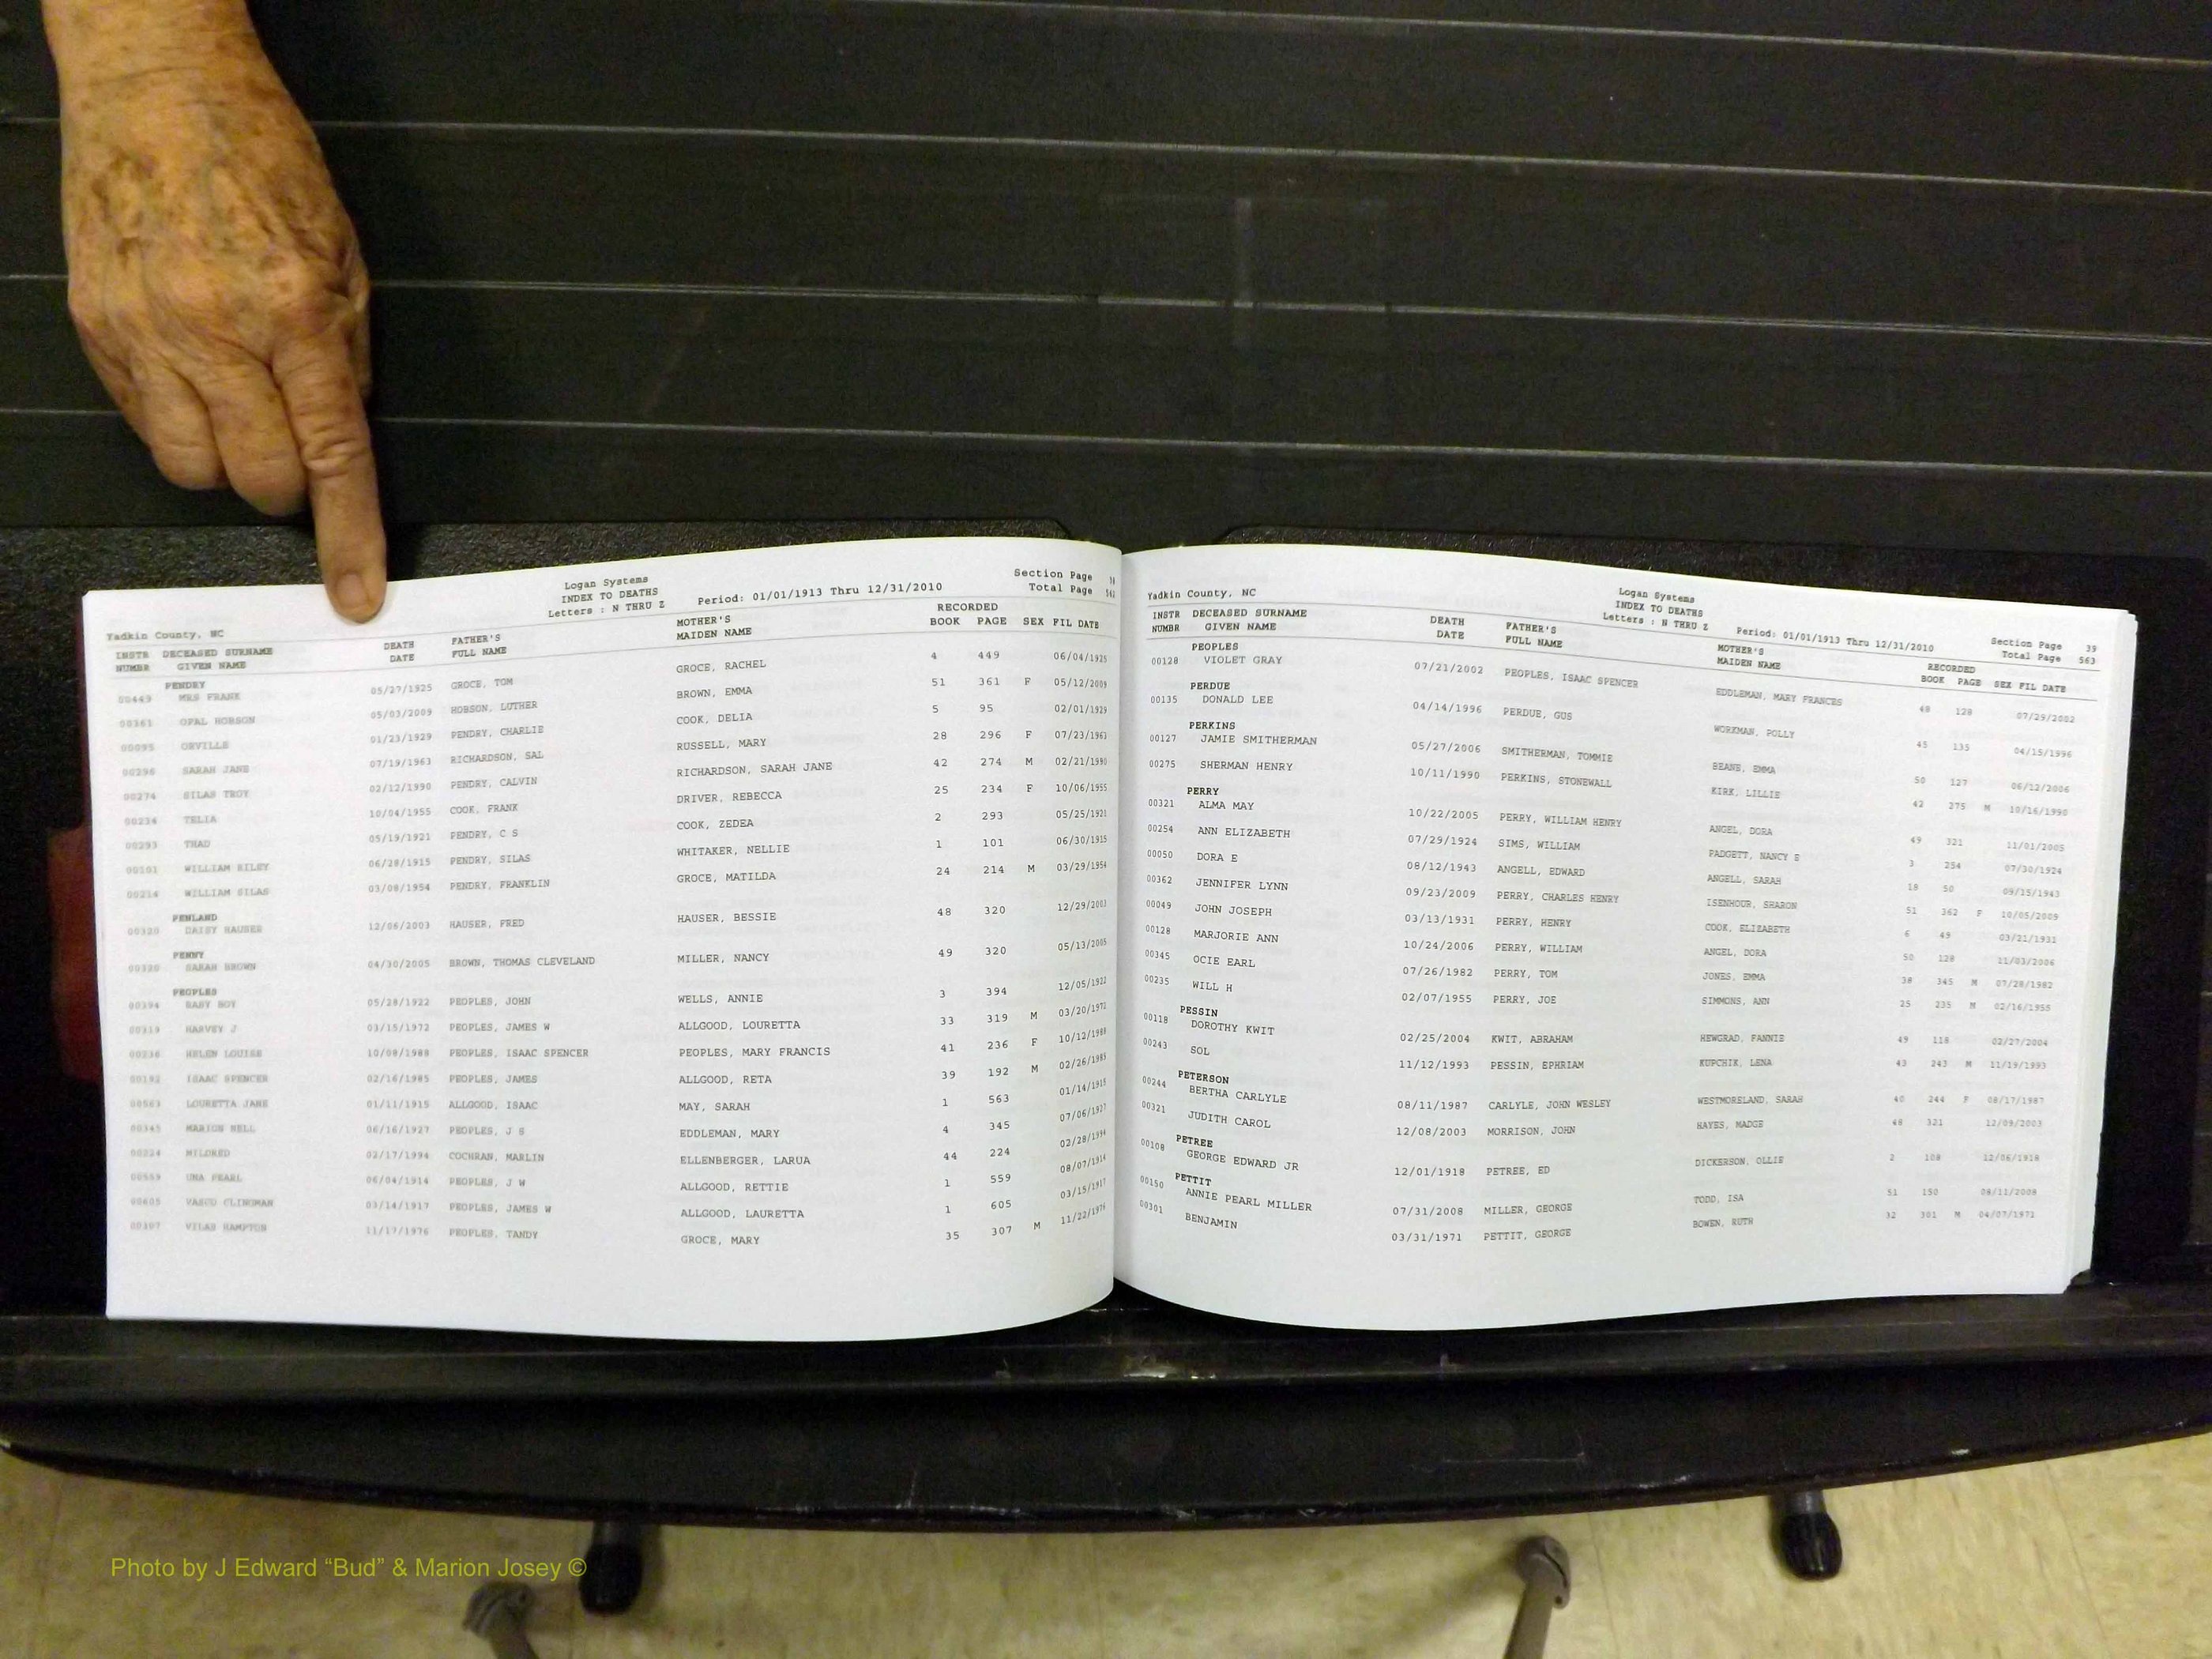 Logan Systems
INDEX TO DEATHS
Letters : N THRU Z
Period: 01/01/1913 Thru 12/31/2010
Section Page
Total Page
Yadkin County, NC
INSTR DECEASED SURNAME DEATH FATHER'S MOTHER'S RECORDED
NUMBR GIVEN NAME DATE FULL NAME MAIDEN NAME BOOK PAGE SEX FIL DATE
PENDRY
00449 MRS FRANK 05/27/1925 GROCE, TOM GROCE, RACHEL 4 449 06/04/1925
00361 OPAL HOBSON 05/03/2009 HOBSON, LUTHER BROWN, EMMA 51 361 F 05/12/2009
00095 ORVILLE 01/23/1929 PENDRY, CHARLIE COOK, DELIA 5 95 02/01/1929
00296 SARAH JANE 07/19/1963 RICHARDSON, SAL RUSSELL, MARY 28 296 F 07/23/1963
00274 SILAS TROY 02/12/1990 PENDRY, CALVIN RICHARDSON, SARAH JANE 42 274 M 02/21/1990
00234 TELIA 10/04/1955 COOK, FRANK DRIVER, REBECCA 25 234 F 10/06/1955
00293 THAD 05/19/1921 PENDRY, C S COOK, ZEDEA 2 293 05/25/1921
00101 WILLIAM RILEY 06/28/1915 PENDRY, SILAS WHITAKER, NELLIE 1 101 06/30/1915
00214 WILLIAM SILAS 03/08/1954 PENDRY, FRANKLIN GROCE, MATILDA 24 214 M 03/29/1954
PENLAND
00320 DAISY HAUSER 12/06/2003 HAUSER, FRED HAUSER, BESSIE 48 320 12/29/2003
PENNY
00320 SARAH BROWN 04/30/2005 BROWN, THOMAS CLEVELAND MILLER, NANCY 49 320 05/13/2005
PEOPLES
00394 BABY BOY 05/28/1922 PEOPLES, JOHN WELLS, ANNIE 3 394 12/05/1922
00319 HARVEY J 03/15/1972 PEOPLES, JAMES W ALLGOOD, LOURETTA 33 319 M 03/20/1972
00236 HELEN LOUISE 10/08/1988 PEOPLES, ISAAC SPENCER PEOPLES, MARY FRANCIS 41 236 F 10/12/1988
00192 ISAAC SPENCER 02/16/1985 PEOPLES, JAMES ALLGOOD, RETA 39 192 M 02/26/1985
00563 LOURETTA JANE 01/11/1915 ALLGOOD, ISAAC MAY, SARAH 1 563 01/14/1915
00345 MARION NELL 06/16/1927 PEOPLES, J S EDDLEMAN, MARY 4 345 07/06/1927
00224 MILDRED 02/17/1994 COCHRAN, MARLIN ELLENBERGER, LARUA 44 224 02/28/1994
00559 UNA PEARL 06/04/1914 PEOPLES, J W ALLGOOD, RETTIE 1 559 08/07/1914
00605 VASCO CLINGMAN 03/14/1917 PEOPLES, JAMES W ALLGOOD, LAURETTA 1 605 03/15/1917
00307 VILAS HAMPTON 11/17/1976 PEOPLES, TANDY GROCE, MARY 35 307 M 11/22/1976
Yadkin County, NC
Logan Systems
INDEX TO DEATHS
Letters : N THRU Z
Period: 01/01/1913 Thru 12/31/2010
Section Page 39
Total Page 563
INSTR DECEASED SURNAME DEATH FATHER'S MOTHER'S RECORDED
NUMBR GIVEN NAME DATE FULL NAME MAIDEN NAME BOOK PAGE SEX FIL DATE
PEOPLES
00128 VIOLET GRAY 07/21/2002 PEOPLES, ISAAC SPENCER EDDLEMAN, MARY FRANCES 48 128 07/29/2002
PERDUE
00135 DONALD LEE 04/14/1996 PERDUE, GUS WORKMAN, POLLY 45 135 04/15/1996
PERKINS
00127 JAMIE SMITHERMAN 05/27/2006 SMITHERMAN, TOMMIE BEANE, EMMA 50 127 06/12/2006
00275 SHERMAN HENRY 10/11/1990 PERKINS, STONEWALL KIRK, LILLIE 42 275 M 10/16/1990
PERRY
00321 ALMA MAY 10/22/2005 PERRY, WILLIAM HENRY ANGEL, DORA 49 321 11/01/2005
00254 ANN ELIZABETH 07/29/1924 SIMS, WILLIAM PADGETT, NANCY E 3 254 07/30/1924
00050 DORA E 08/12/1943 ANGELL, EDWARD ANGELL, SARAH 18 50 09/15/1943
00362 JENNIFER LYNN 09/23/2009 PERRY, CHARLES HENRY ISENHOUR, SHARON 51 362 F 10/05/2009
00049 JOHN JOSEPH 03/13/1931 PERRY, HENRY COOK, ELIZABETH 6 49 03/21/1931
00128 MARJORIE ANN 10/24/2006 PERRY, WILLIAM ANGEL, DORA 50 128 11/03/2006
00345 OCIE EARL 07/26/1982 PERRY, TOM JONES, EMMA 38 345 M 07/28/1982
00235 WILL H 02/07/1955 PERRY, JOE SIMMONS, ANN 25 235 M 02/16/1955
PESSIN
00118 DOROTHY KWIT 02/25/2004 KWIT, ABRAHAM HEWGRAD, FANNIE 49 118 02/27/2004
00243 SOL 11/12/1993 PESSIN, EPHRIAM KUPCHIK, LENA 43 243 M 11/19/1993
PETERSON
00244 BERTHA CARLYLE 08/11/1987 CARLYLE, JOHN WESLEY WESTMORELAND, SARAH 40 244 F 08/17/1987
00321 JUDITH CAROL 12/08/2003 MORRISON, JOHN HAYES, MADGE 48 321 12/09/2003
PETREE
00108 GEORGE EDWARD JR 12/01/1918 PETREE, ED DICKERSON, OLLIE 2 108 12/06/1918
PETTIT
00150 ANNIE PEARL MILLER 07/31/2008 MILLER, GEORGE TODD, ISA 51 150 08/11/2008
00301 BENJAMIN 03/31/1971 PETTIT, GEORGE BOWEN, RUTH 32 301 M 04/07/1971
Photo by J Edward “Bud” & Marion Josey ©